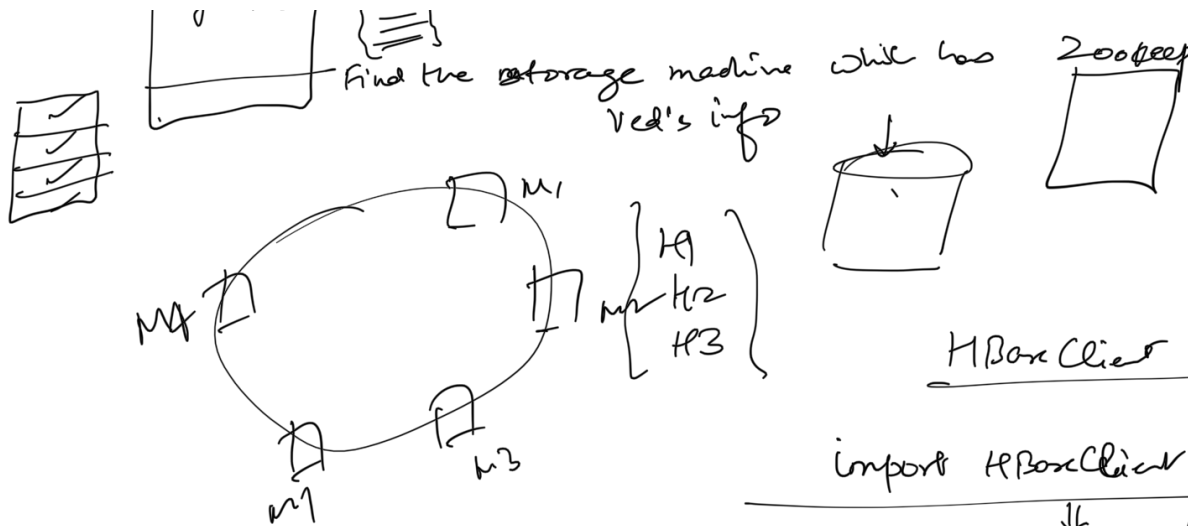 Find the storage machine which has
Ved's info
Zookeep
M1
M2
H1
H2
H3
M4
M3
HBase Client
import HBaseClient